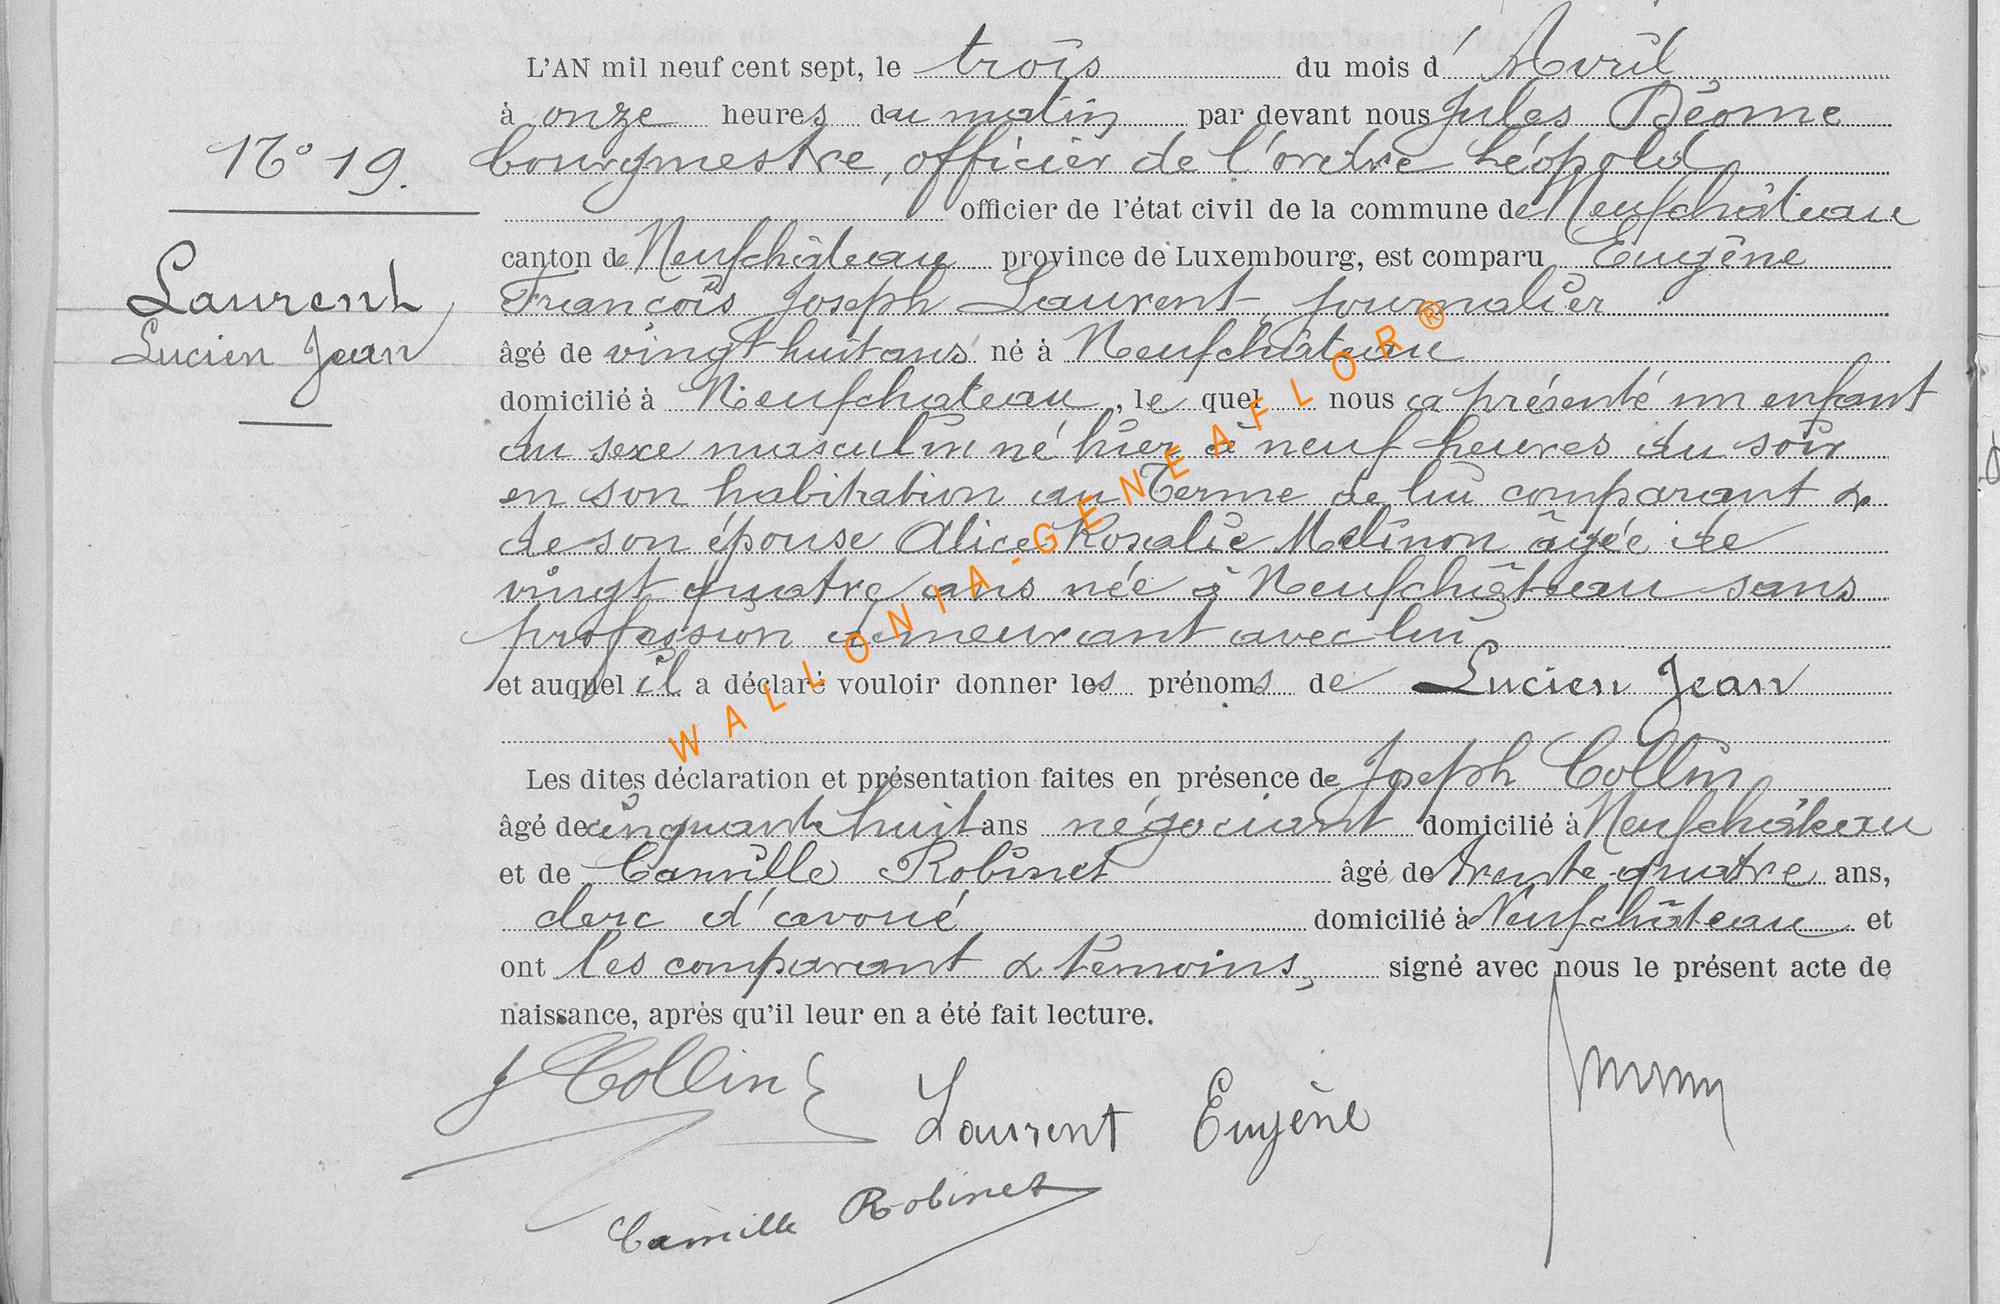 L'AN mil neuf cent sept, le trois du mois d'Avril
à onze heures du matin par devant nous Jules Déome
N° 19. bourgmestre, officier de l'ordre Léopold
officier de l'état civil de la commune de Neufchâteau
canton de Neufchâteau province de Luxembourg, est comparu Eugène
Laurent, François Joseph Laurent, journalier
Lucien Jean âgé de vingt huit ans né à Neufchâteau
domicilié à Neufchateau, le quel nous a présenté un enfant
du sexe masculin né hier à neuf heures du soir
en son habitation au Terme de lui comparant &
de son épouse Alice Rosalie Mélinon âgée de
vingt quatre ans née à Neufchâteau sans
profession demeurant avec lui
et auquel il a déclaré vouloir donner les prénoms de Lucien Jean
Les dites déclaration et présentation faites en présence de Joseph Collin
âgé de cinquante huit ans négociant domicilié à Neufchâteau
et de Camille Robinet âgé de trente-quatre ans,
clerc d'avoué domicilié à Neufchâteau et
ont les comparant & témoins, signé avec nous le présent acte de
naissance, après qu'il leur en a été fait lecture.
J Collin
Laurent Eugène
Camille Robinet
WALLONIA-GENEAFLOR®